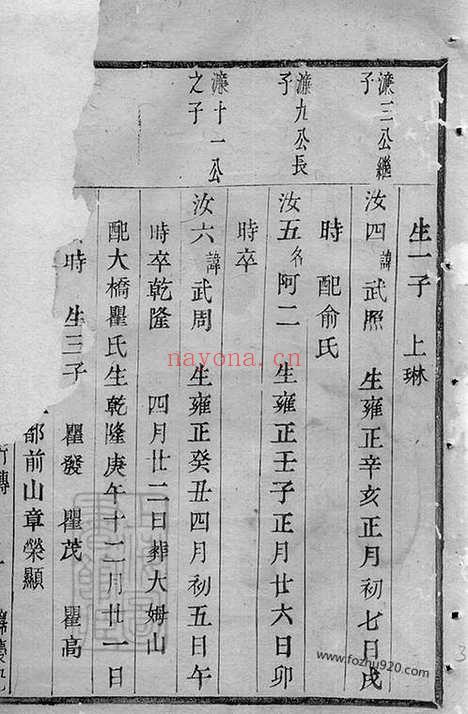 生一子 上琳
濂三公繼
子
汝四諱武照 生雍正辛亥正月初七日戌
時 配俞氏
濂九公長
子
汝五名阿二 生雍正壬子正月廿六日卯
時卒
濂十一公
之子
汝六諱武周 生雍正癸丑四月初五日午
時卒乾隆 四月廿二日葬大姆山
配大橋瞿氏生乾隆庚午十二月廿一日
時 生三子 瞿發 瞿茂 瞿高
都前山章榮顯
nayona.cn
www.fozhu920.com